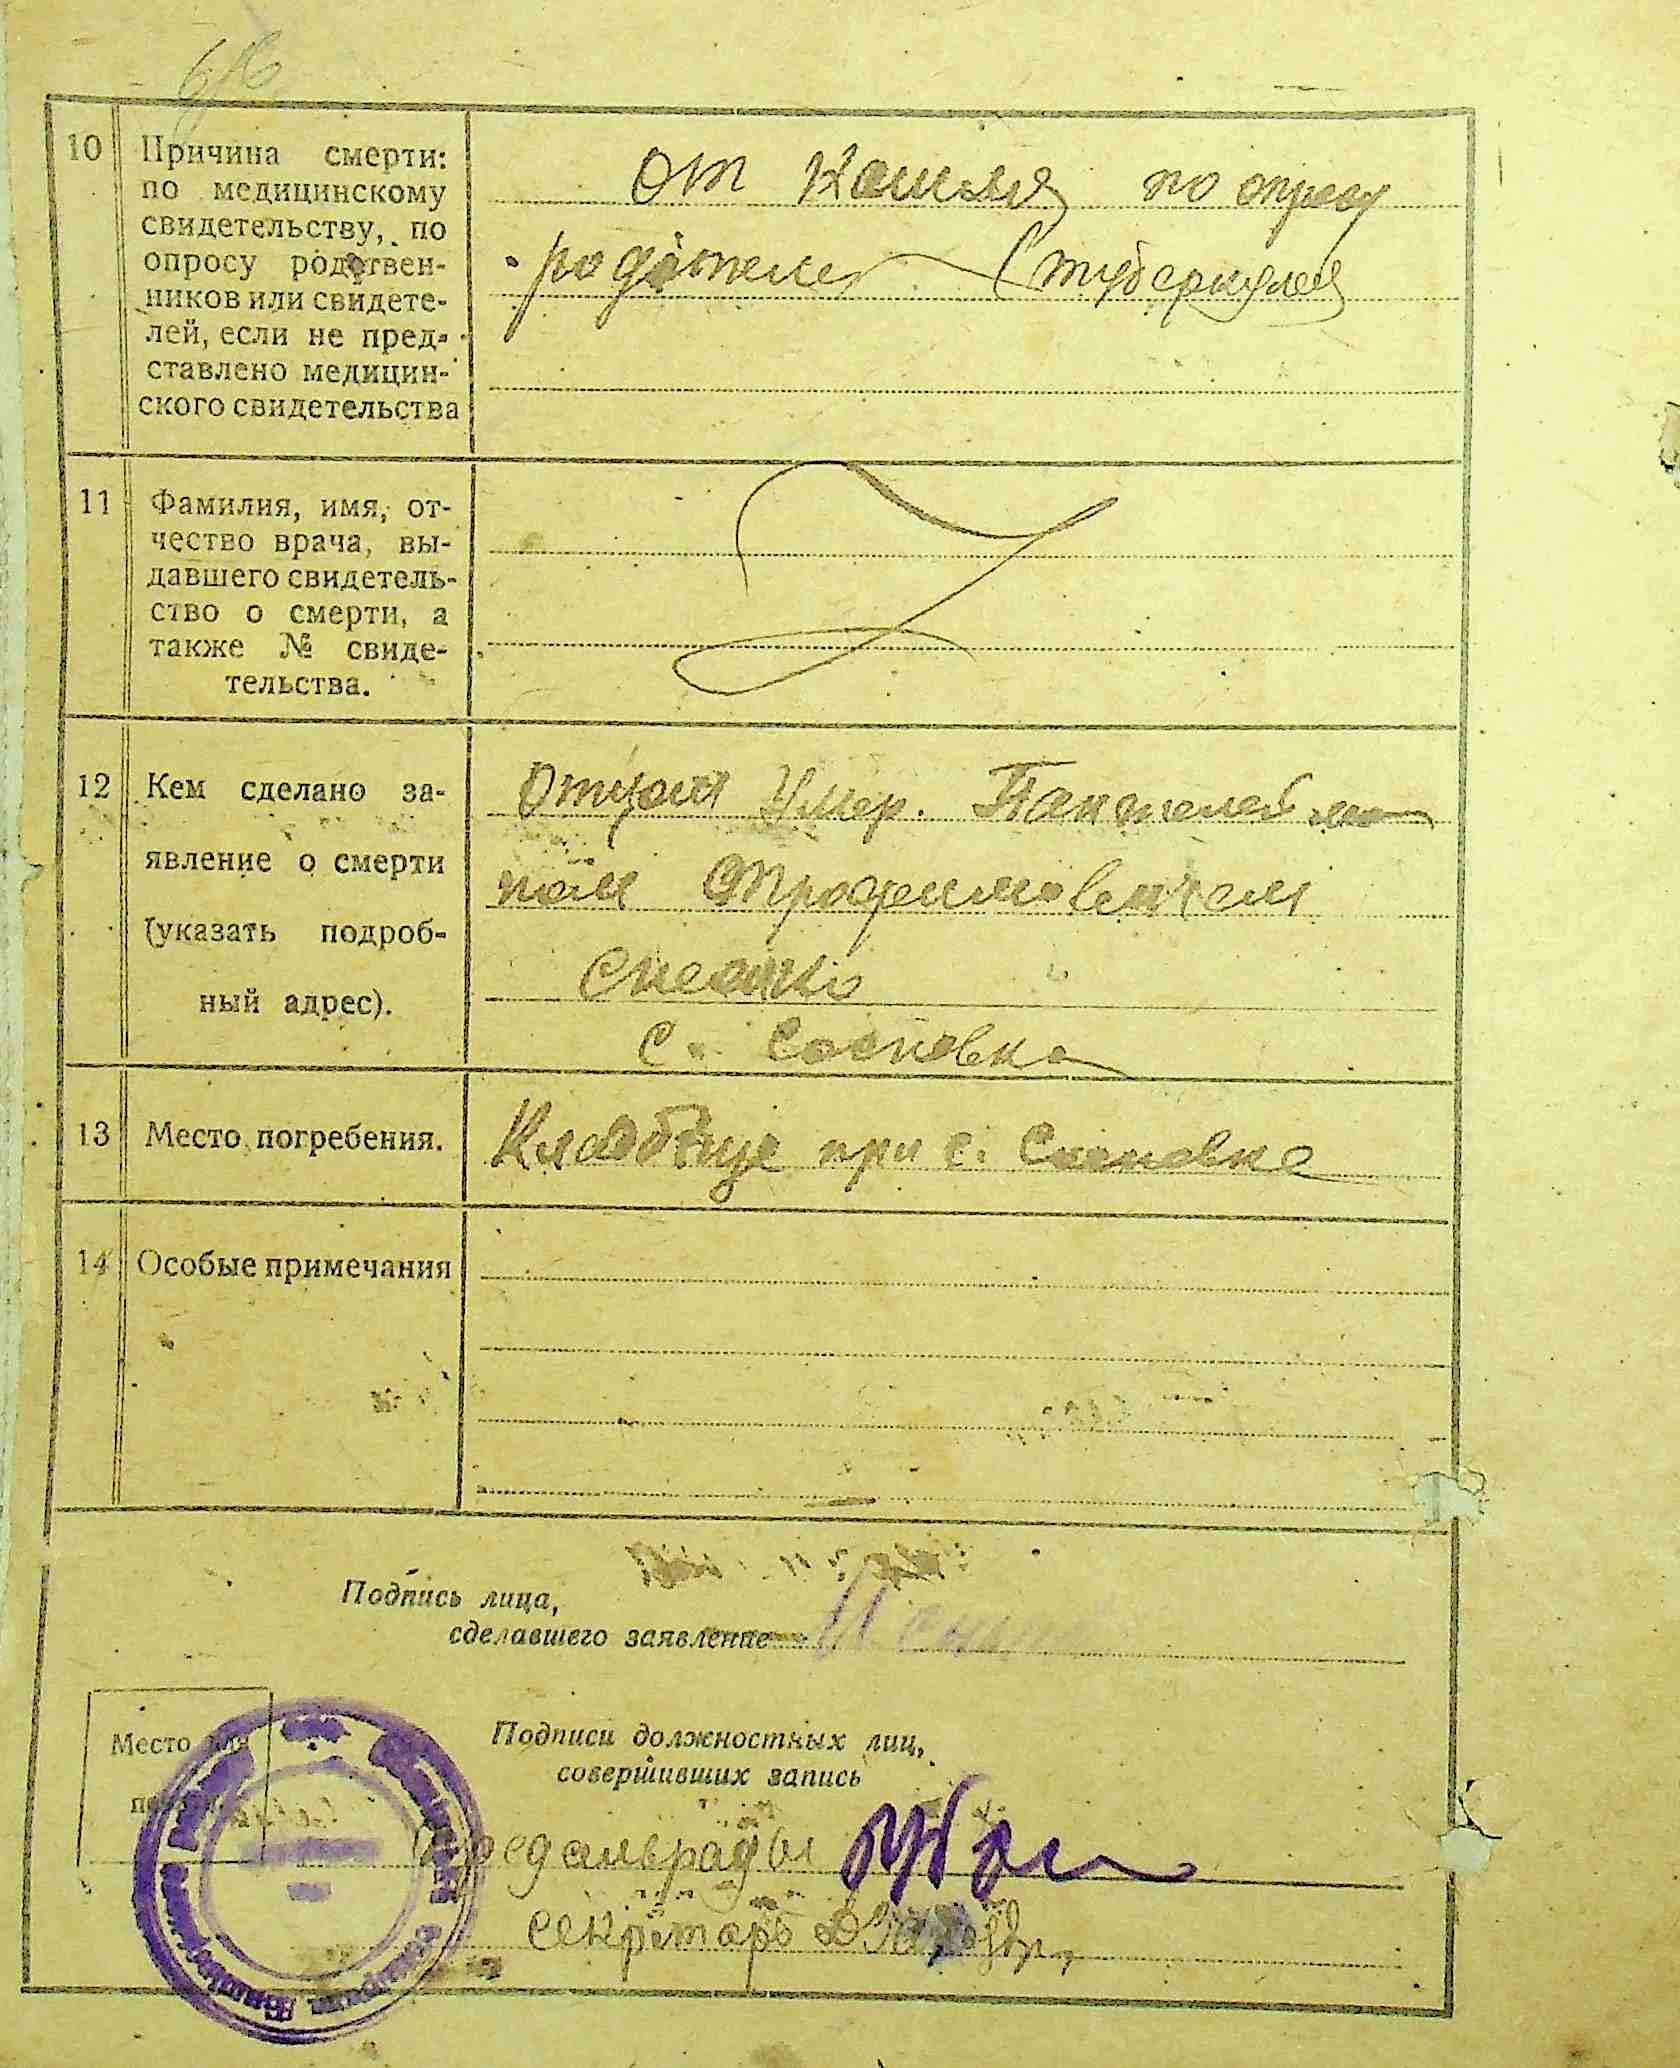 10
Причина смерти:
по медицинскому
свидетельству, по
опросу родствен-
ников или свидете-
лей, если не пред-
ставлено медицин-
ского свидетельства
от Кашля по опросу
родителей (туберкулез
11
Фамилия, имя, от-
чество врача, вы-
давшего свидетель-
ство о смерти, а
также № свиде-
тельства.
12
Кем сделано за-
явление о смерти
(указать подроб-
ный адрес).
Отцом Умер. Пантелеймо
ном Трофимовичем
с. Сосновка
13
Место погребения.
Кладбище при с. Сосновке
14
Особые примечания
Подпись лица,
сделавшего заявление
Место для
Подписи должностных лиц,
совершивших запись
Предсельрады
Секретарь